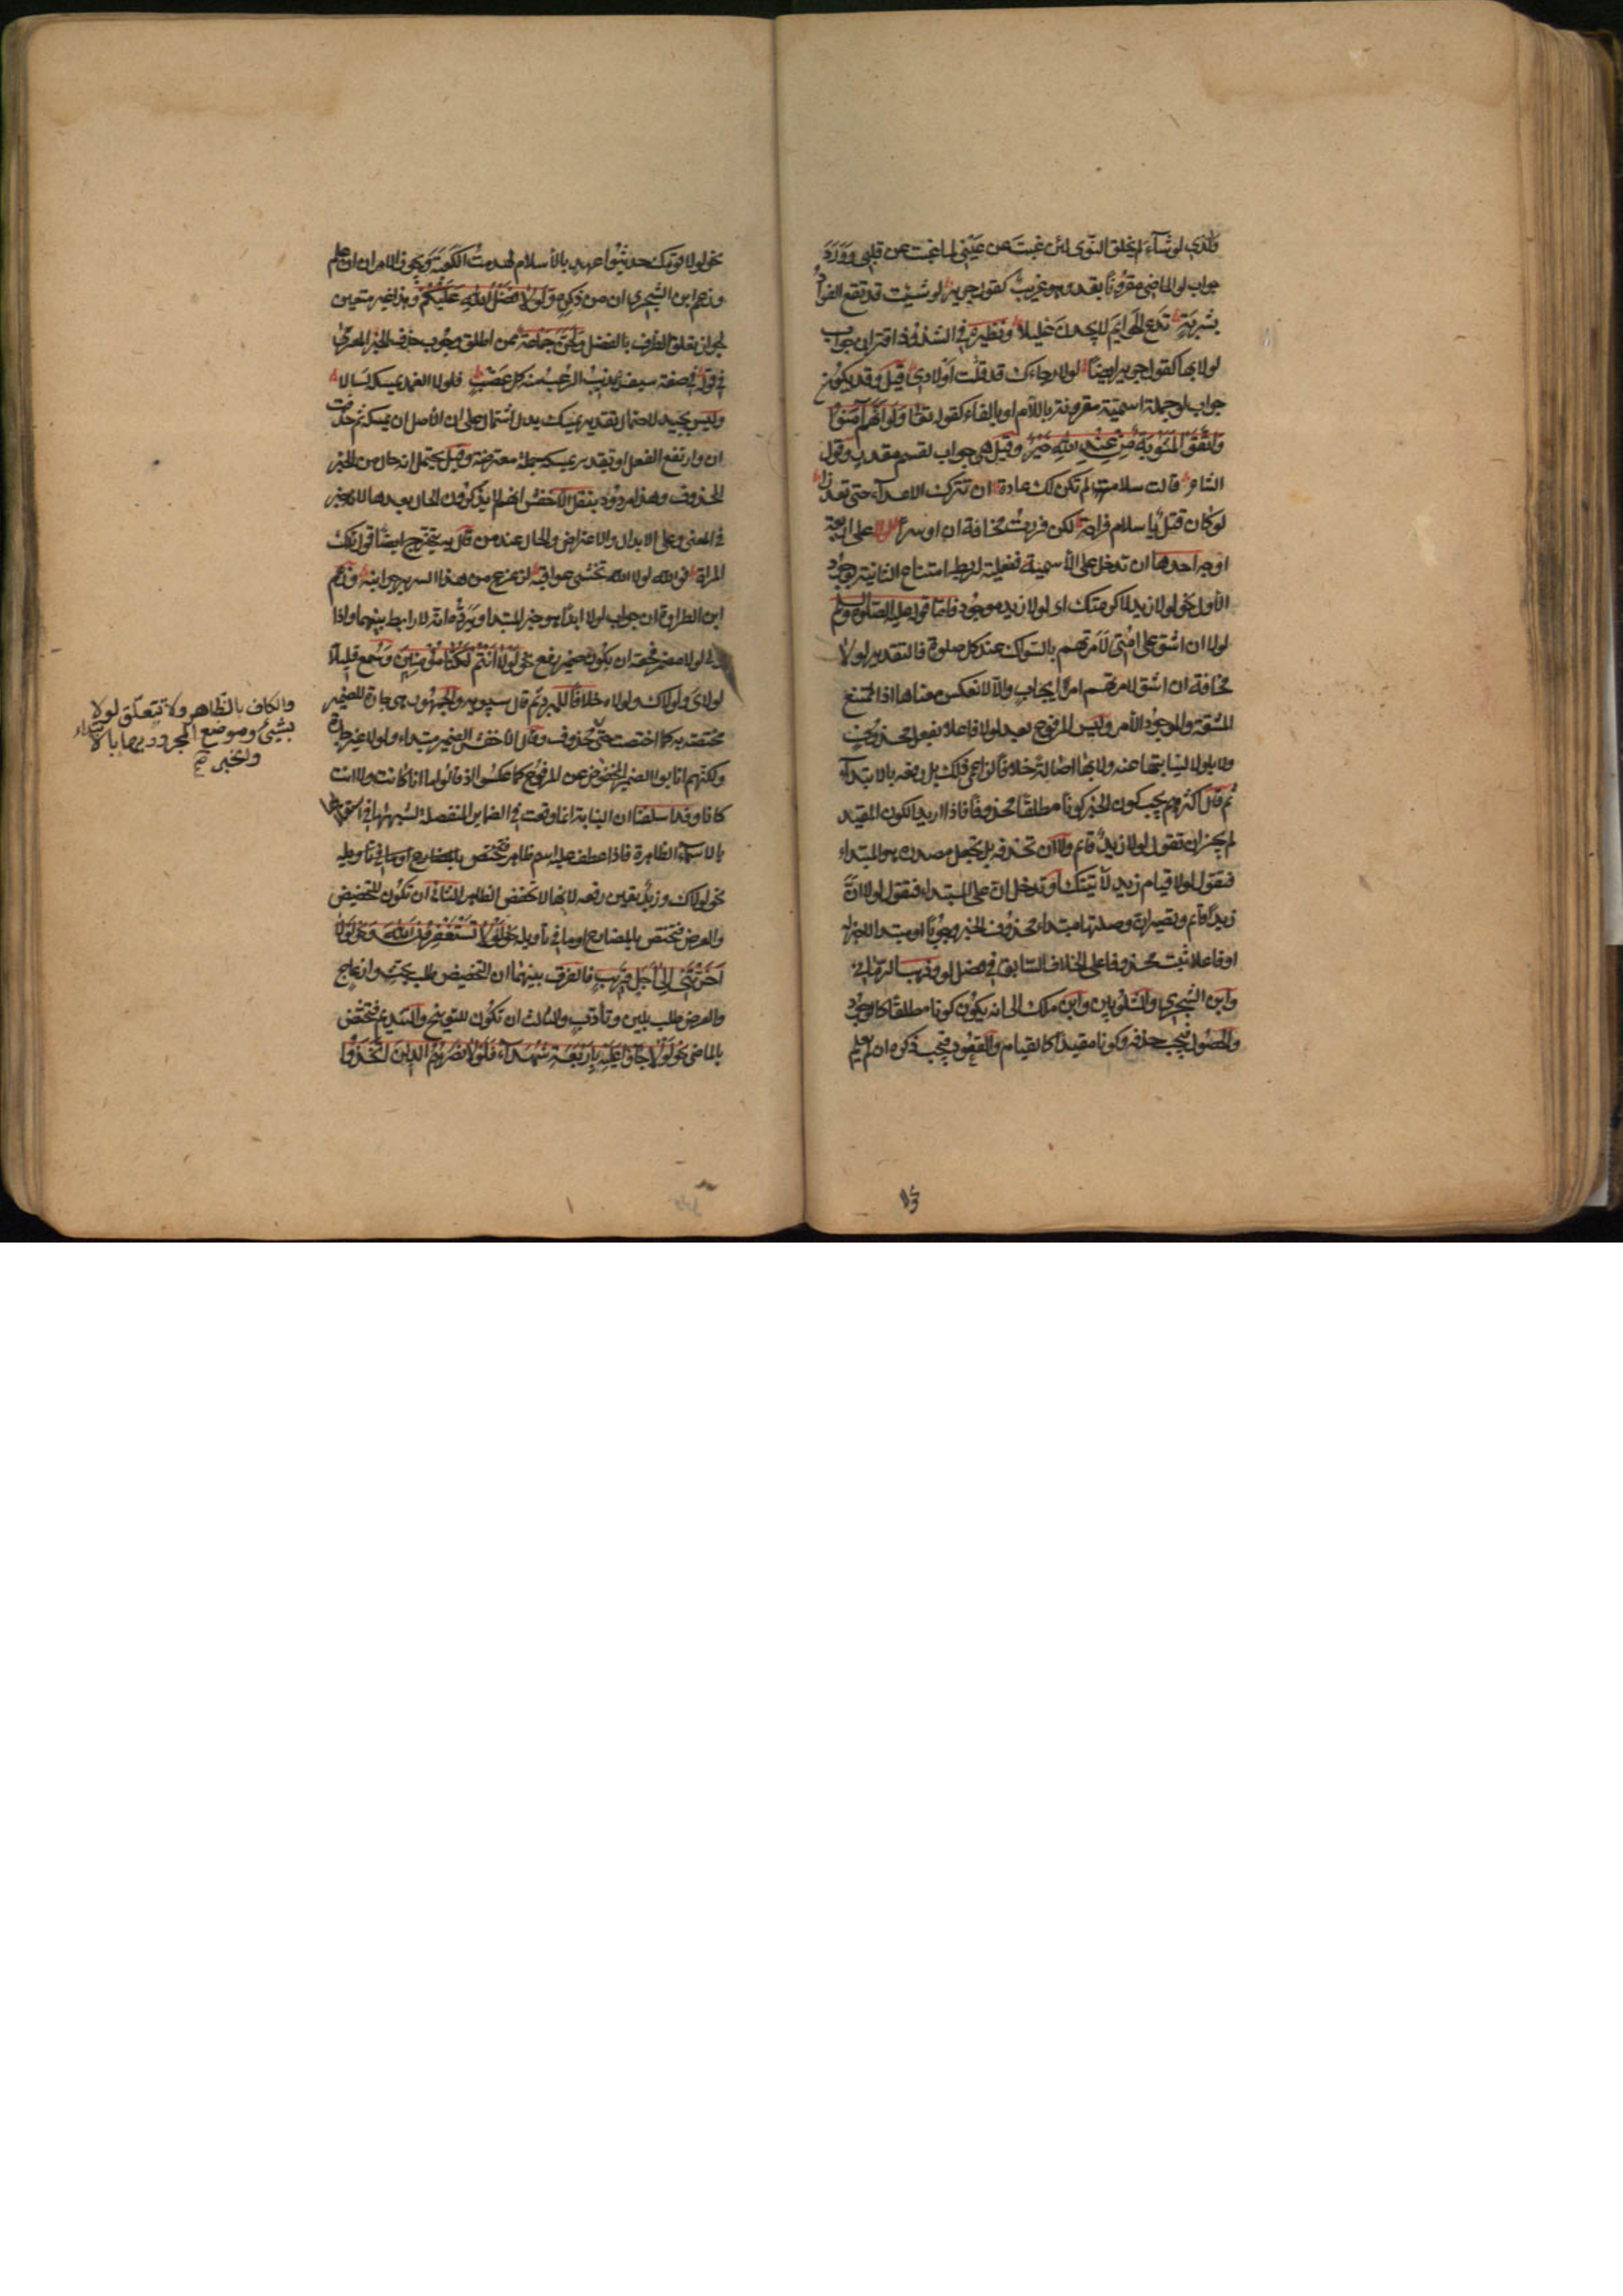 والذي لو شآء لم يخلق النّوى لئن غبتَ عن عَيْني لما غبت عن قلبي وَوَرَدَ
جواب لو الماضي مقرونًا بقد وهو غريبٌ كقول جرير لو شئت قد نقع الفوأد
بشربةٍ تدع الحوايمَ لا يجدن غليلا ونظيره في الشذوذ اقتران جواب
لولا بها كقول جرير ايضاً لولا رجاءك قد قتلت اولادي قيل وقد يكون
جواب لو جملة اسميّة مقرونة باللام او بالفاء كقوله تعٰا ولو انهم آمنوا
واتقوا لمثوبة من عند الله خير وقيل هي جواب لقسم مقدر وقول
الشاعر قالت سلامة لم تكن لك عادة ان تترك الاعدآء حتى تعذرا
لو كان قتل يا سلام فراحة لكن فررت مخافة ان اوسرا لولا على اربعة
اوجه احدها ان تدخل على الأسمية ففعلية لربط امتناع الثانية بوجود
الأولى نحو لولا زيد لاكرمتك اى لولا زيد موجود فامّا قوله عليه الصلوة والسلم
لولا ان اشق على امّتي لأمرتهم بالسّواك عند كل صلوة فالتقدير لولا
مخافة ان اشق لامرتهم امرَ ايجابٍ والّا لانعكس معناها اذا الممتنع
المشقة والموجود الأمر وليس المرفوع بعد لولا فاعلا بفعل محذوف
ولا بلولا لنيابتها عنه ولا بها اصالةً خلافاً لزاعمي ذلك بل رفعه بالابتدآء
ثم قال اكثرهم يجب كون الخبر كونا مطلقاً محذوفاً فاذا اريد الكون المقيد
لم يجز ان تقول لولا زيدٌ قايم ولا ان تحذفه بل تجعل مصدره هو المبتداء
فتقول لولا قيام زيد لأتيتك او تدخل انّ على المبتداء فتقول لولا انّ
زيداً قايم وتصير انّ وصلتها مبتداء محذوف الخبر وجوباً او مبتدا لا خبر له
او فاعلا بثبت محذوفا على الخلاف السّابق في فصل لو وذهب الرمّاني
وابن الشجري والشلوبين وابن ملك الى انه يكون كونا مطلقاً كالوجود
والحصول فيجب حذفه وكونا مقيداً كالقيام والقعود فيجب ذكره ان لم يعلم
نحو لولا قومك حديثوا عهد بالأسلام لهدمت الكعبة ويجوز الامران ان علم
وزعم ابن الشجري ان من ذكره ولولا فضل الله عليكم وهذا غير متعين
لجواز تعلق الظرف بالفضل ولحّن جماعة ممن اطلق وجوب حذف الخبر المعرّي
في قوله في صفة سيف يذيب الرّعب منه كل عضب فلولا الغمد يمسكه لسالا
وليس بجيد لاحتمال تقدير يمسك بدل اشتمال على ان الأصل ان يمسكه ثم حذفت
ان وارتفع الفعل او تقدير يمسكه جملة معترضة وقيل يحتمل انه حال من الخبر
المحذوف وهذا مردود بنقل الأخفش انهم لا يذكرون الحال بعدها لانه خبر
في المعنى وعلى الابدال والاعتراض والحال عند من قال به يتخرج ايضًا قول تلك
المراة فوالله لولا الله تخشى عواقبه لزعزع من هذا السرير جوانبه وزعم
ابن الطراوة ان جواب لولا ابدًا هو خبر المبتدا ويردّه انّه لا رابط بينهما واذا
ولي لولا مضمر فحقه ان يكون ضمير رفع نحو لولا انتم لكنا مؤمنين وسُمع قليلاً
لولاي ولولاك ولولاه خلافاً للمبرد ثم قال سيبويه والجمهور هي جارة للضمير
مختصة به كما اختصت حتّى
والكاف بالظاهر ولا تتعلّق لولا
بشيءٍ وموضع المجرور بها بالابتداء
والخبر صح
محذوف وقال الاخفش الضمير مبتداء ولولا غير جارة
ولكنهم انابوا الضمير المخفوض عن المرفوع كما عكسوا اذ قالوا ما انا كانت ولا انت
كانا وقد اسلفنا ان النيابة انما وقعت في الضماير المنفصلة لشبهها في استقلالها
بالاسماء الظاهرة فاذا عطف عليه اسم ظاهر
نحو لولاك وزيدٌ تعين رفعه لانها لا تخفض الظاهر الثاني ان تكون للتحضيض
والعرض فتختص بالمضارع او ما في تأويله نحو لولا تستغفرون الله ونحو لولا
اخرتني الى اجل قريب والفرق بينهما ان التحضيض طلب بحثٍ وازعاج
والعرض طلب بلين وتأدّبٍ والثالث ان تكون للتوبيخ والتنديم فتختص
بالماضي نحو لولا جآؤا عليه باربعة شهدآء فلولا نصرهم الذين اتخذوا